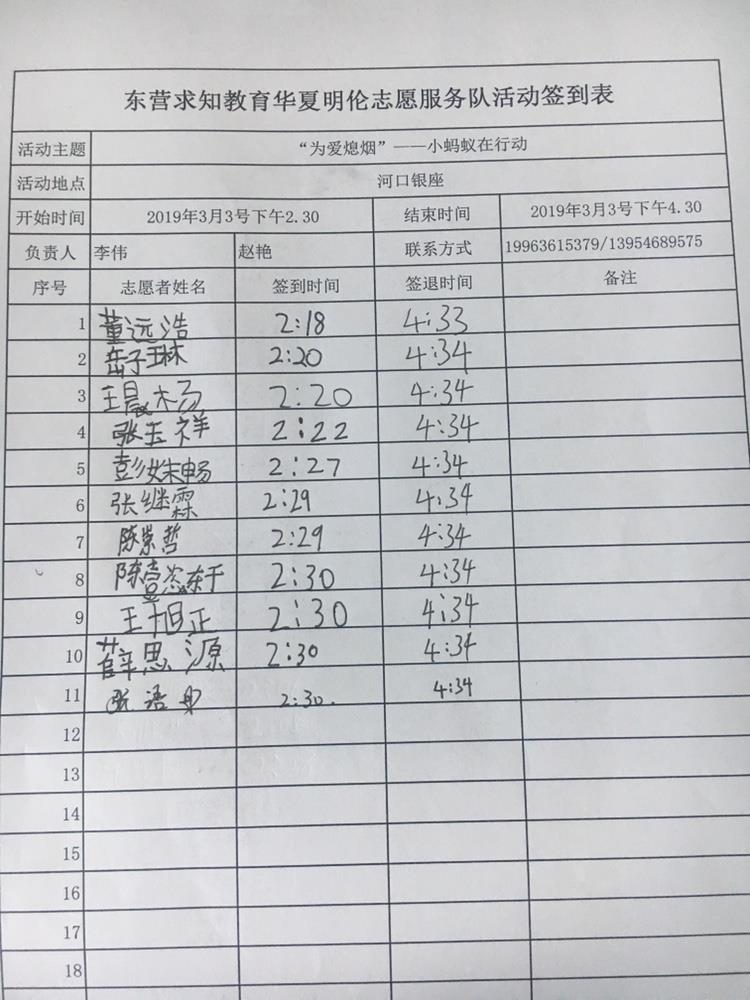 东营求知教育华夏明伦志愿服务队活动签到表
活动主题 “为爱熄烟”——小蚂蚁在行动
活动地点 河口银座
开始时间 2019年3月3号下午2.30 结束时间 2019年3月3号下午4.30
负责人 李伟 赵艳 联系方式 19963615379/13954689575
序号 志愿者姓名 签到时间 签退时间 备注
1 董远浩 2:18 4:33
2 岳子琳 2:20 4:34
3 王晨杨 2:20 4:34
4 张玉祥 2:22 4:34
5 彭姝畅 2:27 4:34
6 张继霖 2:29 4:34
7 陈崇哲 2:29 4:34
8 2:30 4:34
9 王旭正 2:30 4:34
10 薛思源 2:30 4:34
11 2:30. 4:34
12
13
14
15
16
17
18